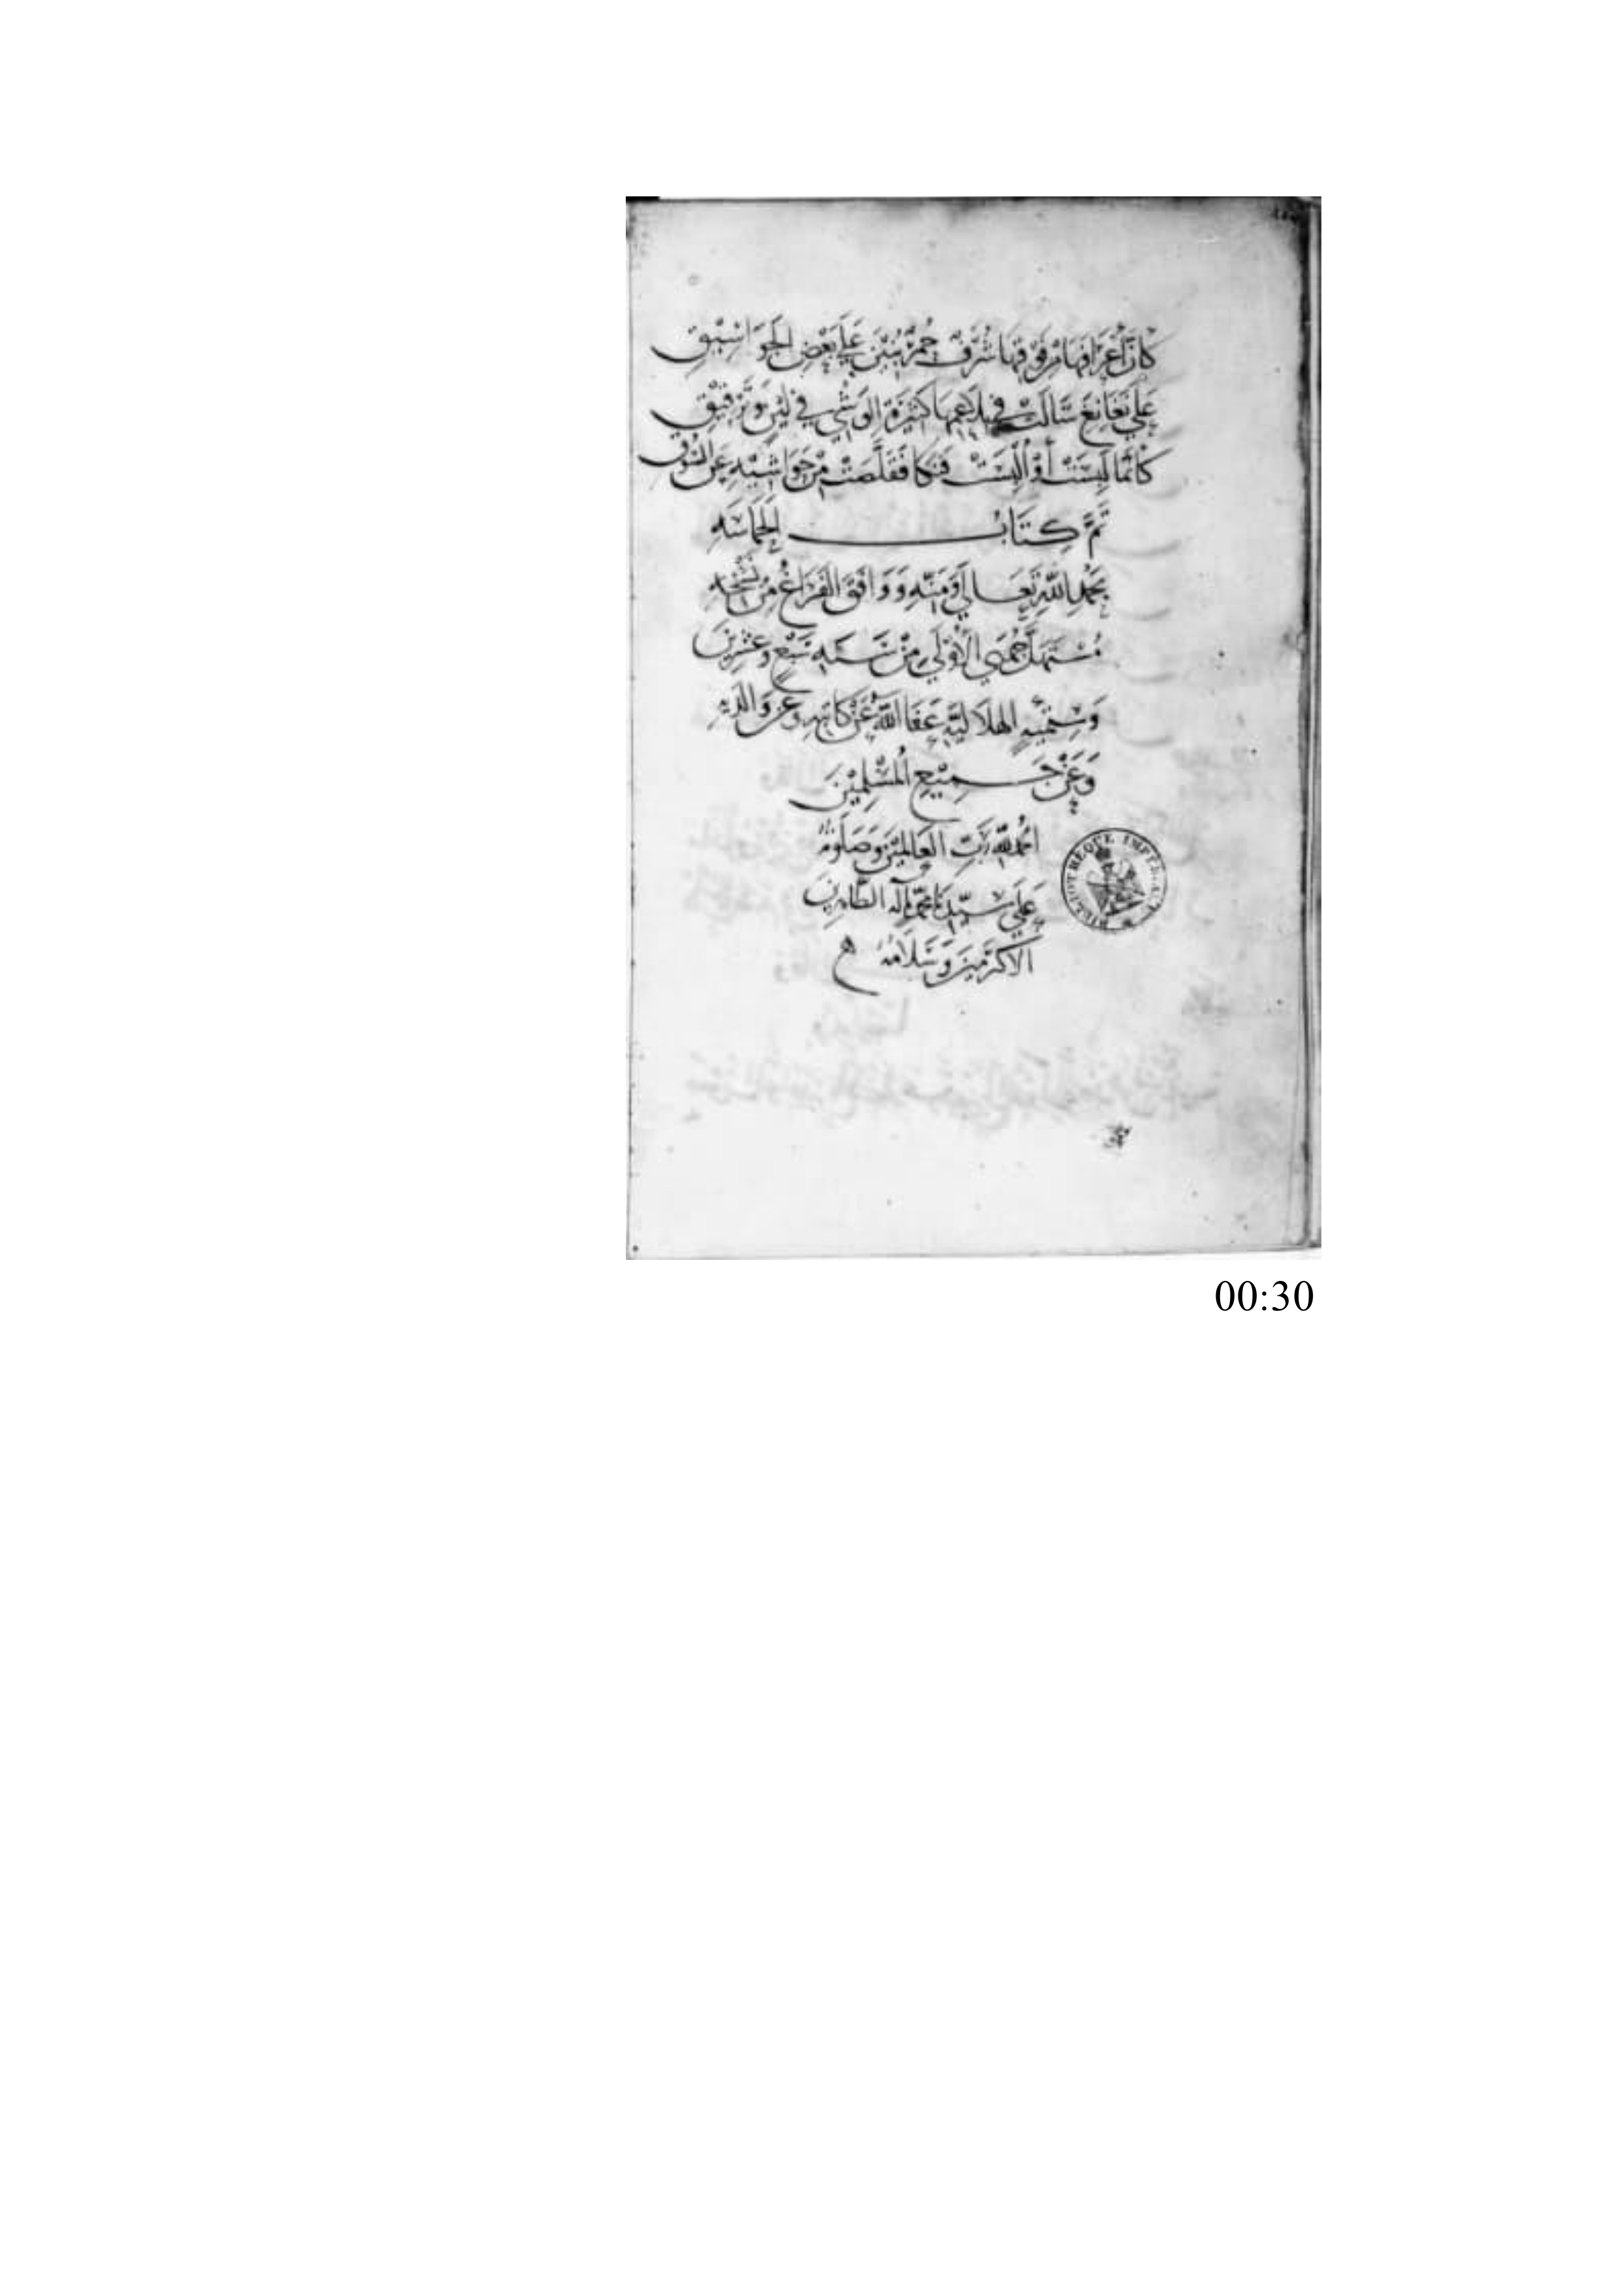 كَأَنَّ أَعْرَافَهَا مِنْ فَوْقِهَا شُرَفٌ حُمْرٌ بُنِيْنَ عَلَى بَعْضِ الْجَوَاسِيْقِ
عَلَى نَغَانِغَ سَالَتْ فِي بَلَاعِمِهَا كَثِيْرَةِ الوَشْيِ فِي لِيْنٍ وَتَرْقِيْقِ
كَأَنَّمَا لَبِسَتْ أَوْ أُلْبِسَتْ فَنَكًا فَقَلَّصَتْ مِنْ حَوَاشِيْهِ عَنِ السُّوْقِ
تَمَّ كِتَابُ الْحَمَاسَةِ
بِحَمْدِ اللّٰهِ تَعَالَى وَمَنِّهِ وَوَافَقَ الفَرَاغُ مِنْ نَسْخِهِ
مُسْتَهَلَّ جُمَدَى الأُوْلَى مِنْ سَنَةِ سَبْعٍ وَعِشْرِيْنَ
وَسِتِّمِيَةٍ الهِلَالِيَّةِ عَفَا اللّٰهُ عَنْ كَاتِبِهِ وَعَنْ وَالِدَيْهِ
وَعَنْ جَمِيْعِ الْمُسْلِمِيْنَ
الحَمْدُ لِلّٰهِ رَبِّ العَالَمِيْنَ وَصَلَوَتُهُ
عَلَى سَيِّدِنَا مُحَمَّدٍ وَآلِهِ الطَّاهِرِيْنَ
الأَكْرَمِيْنَ وَسَلَامُهُ
BIBLIOTHEQUE IMPERIALE
00:30